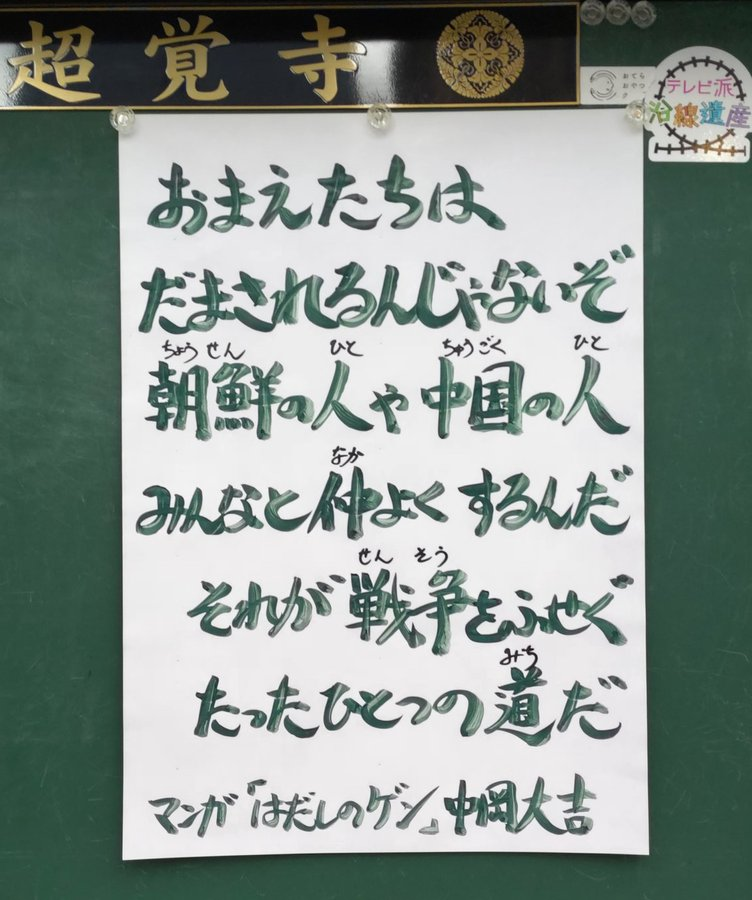 超覚寺
おてら
おやつ
ク
テレビ派
沿線遺産
おまえたちは
だまされるんじゃないぞ
ちょう せん ひと ちゅうごく ひと
朝鮮の人や中国の人
なか
みんなと仲よくするんだ
せん そう
それが戦争をふせぐ
みち
たったひとつの道だ
マンガ「はだしのゲン」中岡大吉